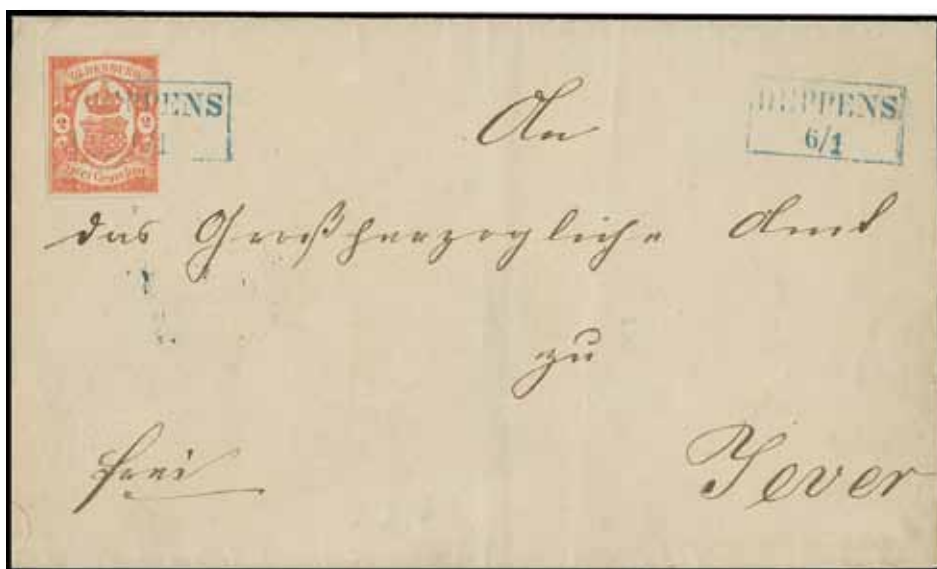 OLDENBURG
2 2
zwei Groschen
HEPPENS
HEPPENS
6/1
An
das Großherzogliche Amt
zu
frei
Jever